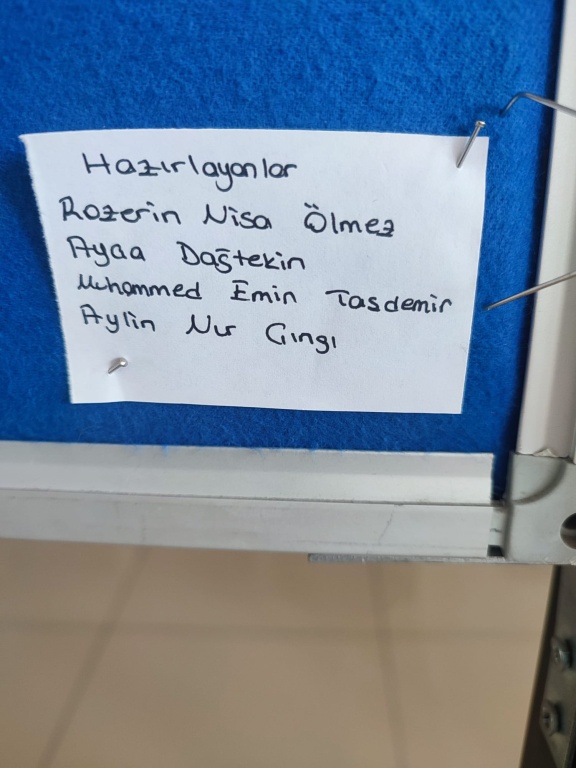 Hazırlayanlar
Rozerin Nisa Ölmez
Ayaa Dağtekin
Muhammed Emin Tasdemir
Aylin Nur Çıngı